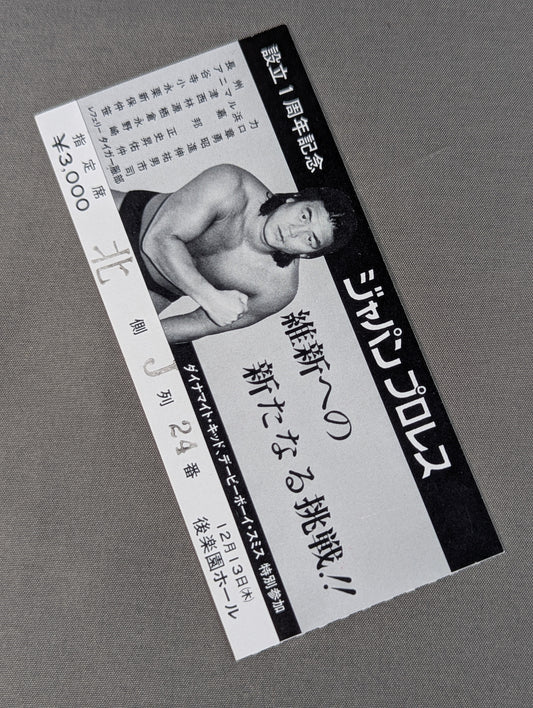 設立1周年記念
ジャパンプロレス
長州 力
アニマル浜口
谷津嘉章
寺西 勇
小林邦昭
栗栖正伸
新倉史祐
保永昇男
レフェリー タイガー服部
維新への
新たなる挑戦!!
ダイナマイト・キッド、デービーボーイ・スミス 特別参加
指定席
¥3,000
北側 J列 24番
12月13日(木)
後楽園ホール